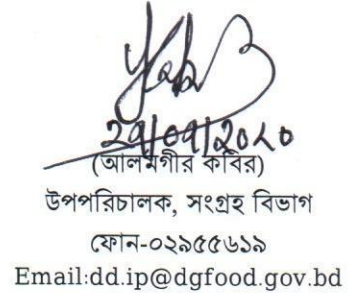 (আলমগীর কবির)
উপপরিচালক, সংগ্রহ বিভাগ
ফোন-০২৯৫৫৬১৯
Email:dd.ip@dgfood.gov.bd